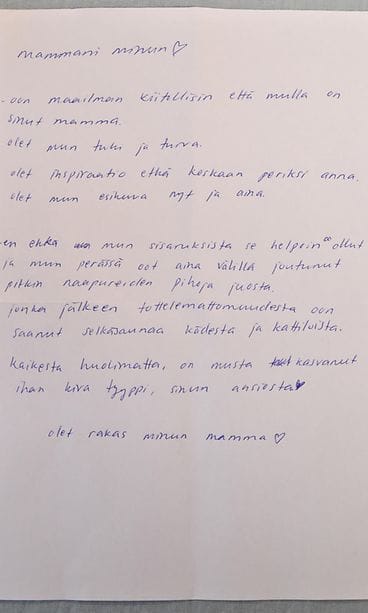 mammani minun♡
oon maailman kiitollisin että mulla on
sinut mamma.
olet mun tuki ja turva.
olet inspiraatio etkä koskaan periksi anna.
olet mun esikuva nyt ja aina.
en ehkä mun sisaruksista se helpoin oo ollut
ja mun perässä oot aina välillä joutunut
pitkin naapureiden pihoja juosta.
jonka jälkeen tottelemattomuudesta oon
saanut selkäsaunaa kädestä ja kattiloista.
kaikesta huolimatta, on musta kasvanut
ihan kiva tyyppi, sinun ansiosta♥
olet rakas minun mamma♡